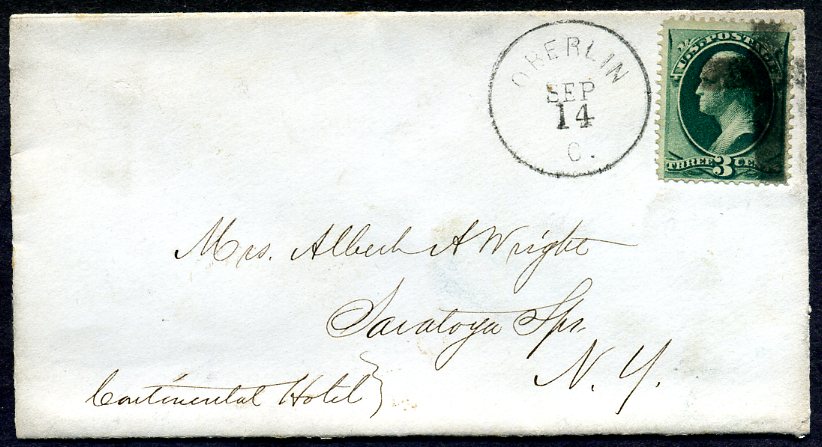 OBERLIN
SEP
14
O.
U.S. POSTAGE
THREE 3 CENTS
Mrs. Albert A Wright
Saratoga Sps.
N. Y.
Continental Hotel